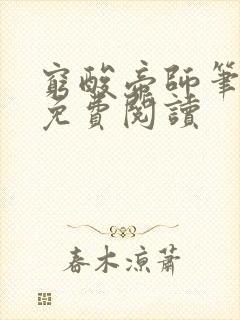 窮酸帝師筆
免費閱讀
春木涼蕭